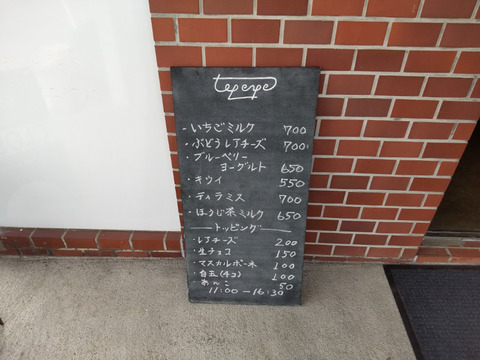 ・いちごミルク 700
・ぶどうレアチーズ 700
・ブルーベリー
ヨーグルト 650
・キウイ 550
・ティラミス 700
・ほうじ茶ミルク 650
トッピング
・レアチーズ 200
・生チョコ 150
・マスカルポーネ 100
・白玉(4コ) 100
あんこ 50
11:00-16:30